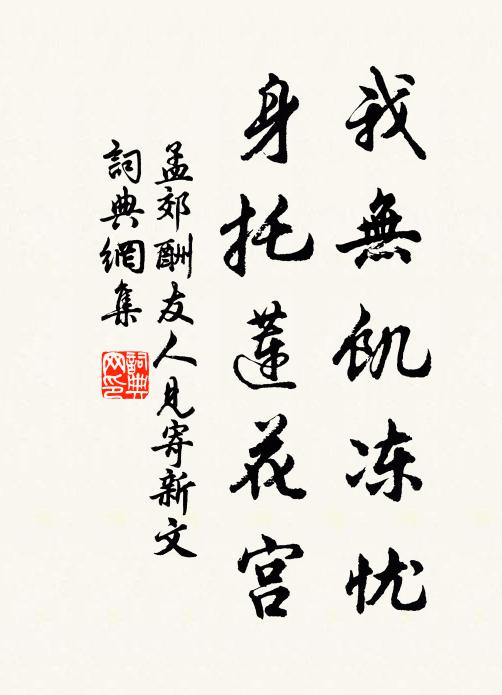 我無飢冻忧
身托蓮花宫
孟郊酬友人見寄新文
詞典網集
詞典网印